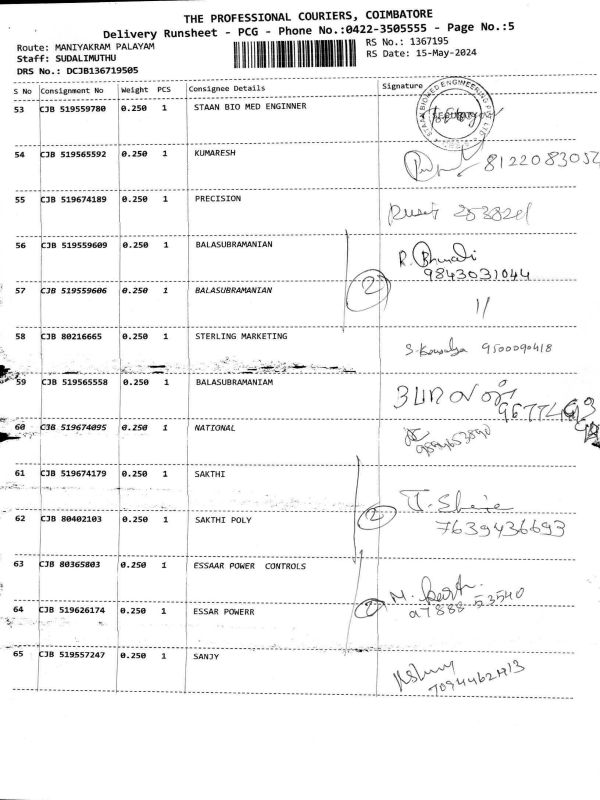 THE PROFESSIONAL COURIERS, COIMBATORE
Delivery Runsheet - PCG - Phone No.:0422-3505555 - Page No.:5
Route: MANIYAKRAM PALAYAM
Staff: SUDALIMUTHU
DRS No.: DCJB136719505
RS No.: 1367195
RS Date: 15-May-2024
S No Consignment No Weight PCS Consignee Details Signature
53 CJB 519559780 0.250 1 STAAN BIO MED ENGINNER
54 CJB 519565592 0.250 1 KUMARESH 8122083054
55 CJB 519674189 0.250 1 PRECISION
56 CJB 519559609 0.250 1 BALASUBRAMANIAN
9843031044
2
57 CJB 519559606 0.250 1 BALASUBRAMANIAN 11
58 CJB 80216665 0.250 1 STERLING MARKETING 9500090418
59 CJB 519565558 0.250 1 BALASUBRAMANIAM
60 CJB 519674095 0.250 1 NATIONAL
61 CJB 519674179 0.250 1 SAKTHI
2
62 CJB 80402103 0.250 1 SAKTHI POLY 7639436693
63 CJB 80365803 0.250 1 ESSAAR POWER CONTROLS
2
64 CJB 519626174 0.250 1 ESSAR POWERR
65 CJB 519557247 0.250 1 SANJY